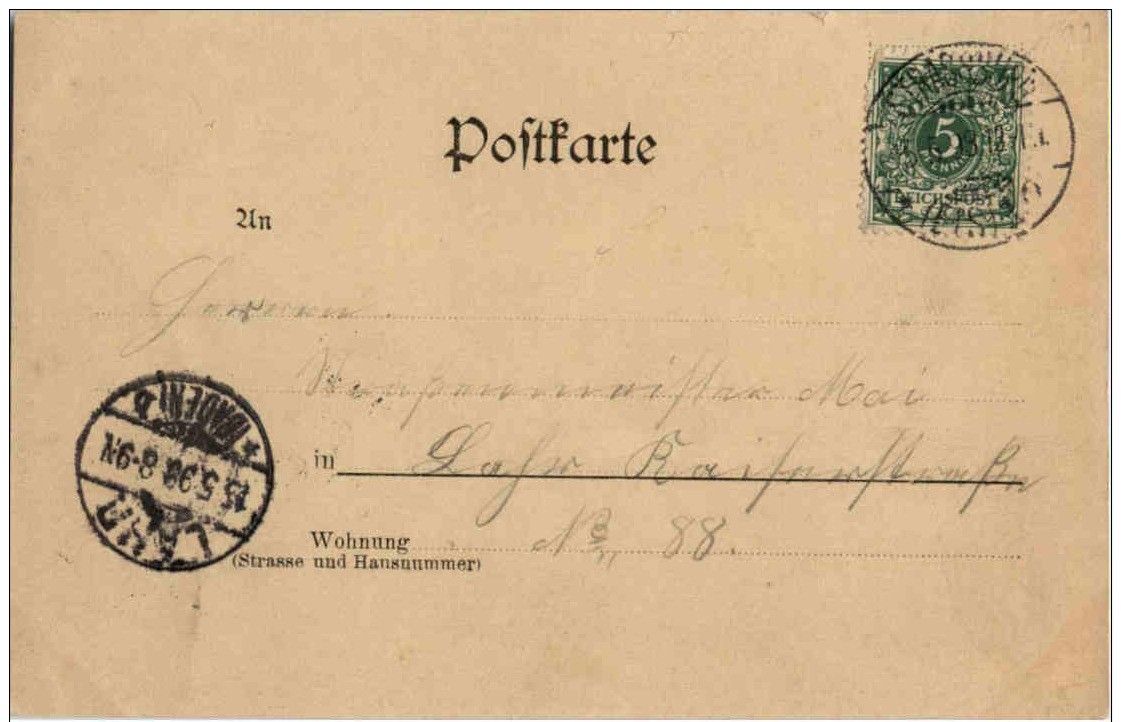 Postkarte
5
REICHSPOST
An
Straßenmeister Mai
in Lahr Kaiserstraße
Wohnung No 88.
(Strasse und Hausnummer)
LAHR
15.5.98. 8-9 N
(BADEN)